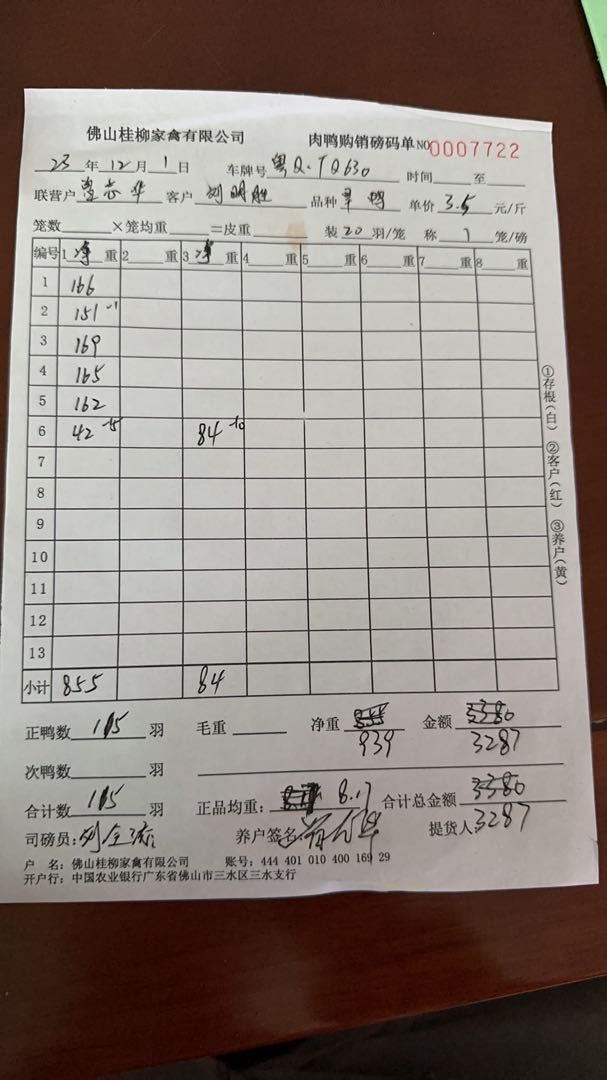 佛山桂柳家禽有限公司 肉鸭购销磅码单 NO 0007722
23 年 12 月 1 日 车牌号 粤Q·TQ630 时间 至
联营户 客户 刘明胜 品种 单价 3.5 元/斤
笼数 ×笼均重 =皮重 装 20 羽/笼 称 1 笼/磅
编号 1 净 重 2 重 3 净 重 4 重 5 重 6 重 7 重 8 重
1 166
2 151 -1
3 169
4 165
5 162
6 42 -5 84 -10
7
8
9
10
11
12
13
小计 855 84
①存根(白) ②客户(红) ③养户(黄)
正鸭数 115 羽 毛重 净重 855 金额 3380
939 3287
次鸭数 羽
合计数 115 羽 正品均重: 8.17 合计总金额 3380
司磅员: 养户签名 提货人 3287
户 名: 佛山桂柳家禽有限公司 账号: 444 401 010 400 169 29
开户行: 中国农业银行广东省佛山市三水区三水支行